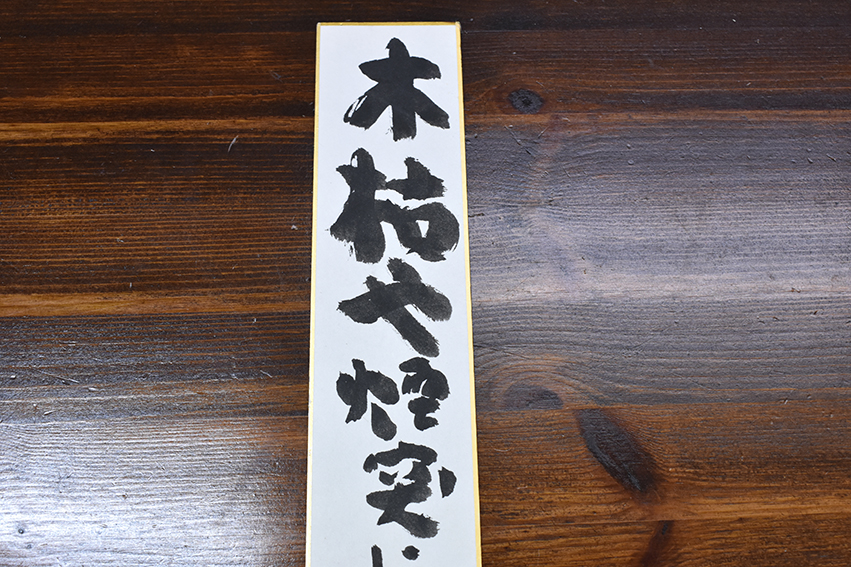 木枯や煙突に